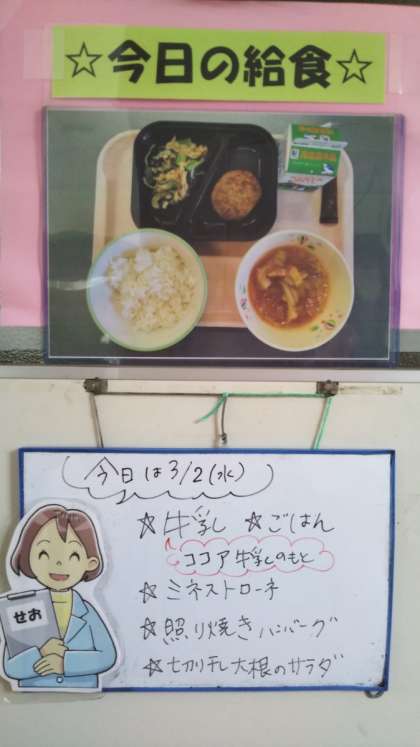 ☆今日の給食☆
今日は3/2(水)
☆牛乳 ☆ごはん
ココア牛乳のもと
☆ミネストローネ
☆照り焼きハンバーグ
☆切り干し大根のサラダ
せお